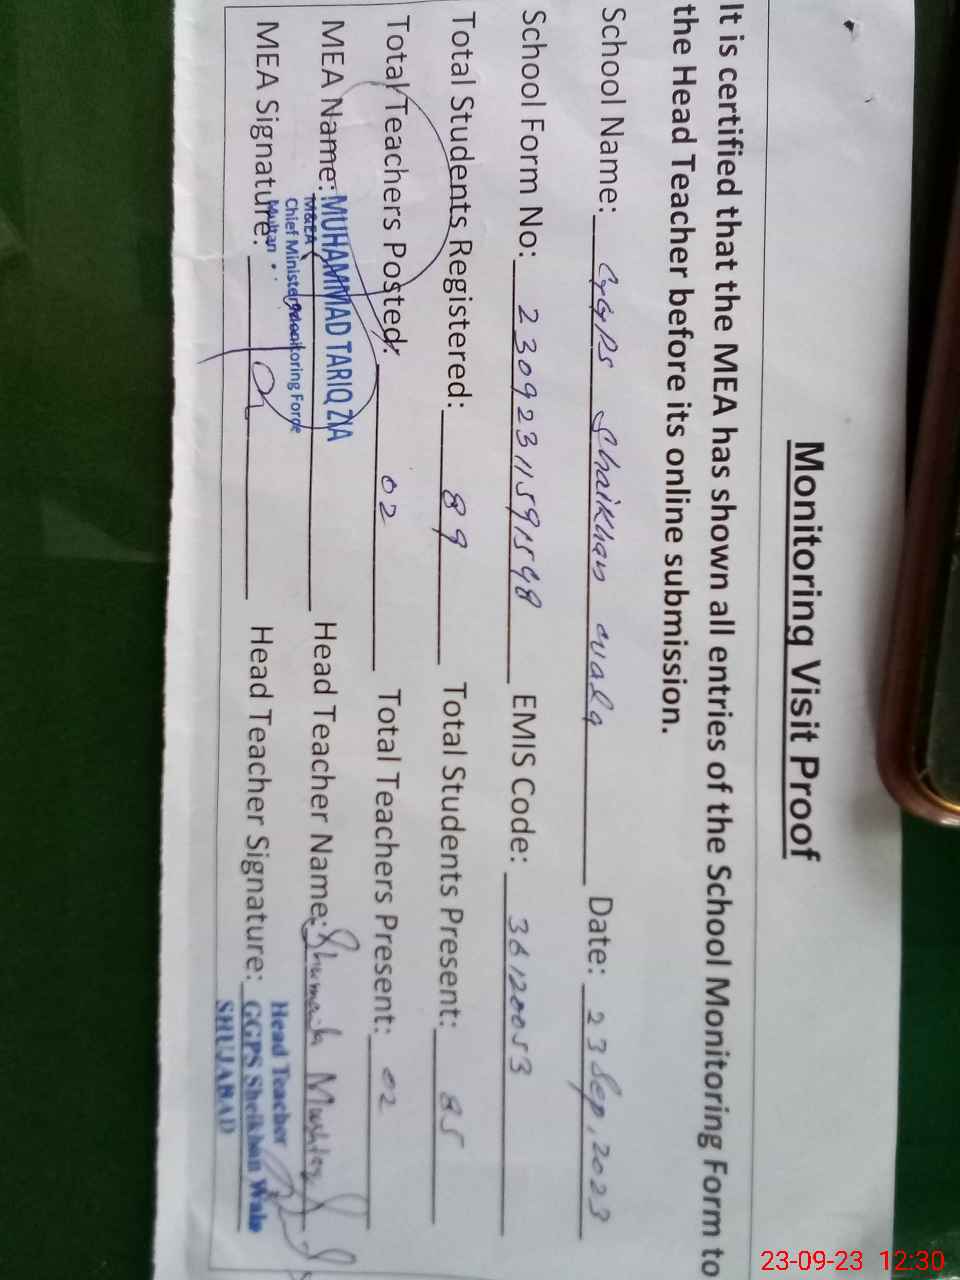 Monitoring Visit Proof
It is certified that the MEA has shown all entries of the School Monitoring Form to
the Head Teacher before its online submission.
School Name: GGPS Shaikhan wala Date: 23 Sep, 2023
School Form No: 230923115915498 EMIS Code: 36120053
Total Students Registered: 89 Total Students Present: 85
Total Teachers Posted: 02 Total Teachers Present: 02
MEA Name: MUHAMMAD TARIQ ZIA Head Teacher Name:
M&EA
Chief Minister Monitoring Force
Multan
MEA Signature: Head Teacher Signature:
Head Teacher
GGPS Sheikhan Wala
SHUJABAD
23-09-23 12:30